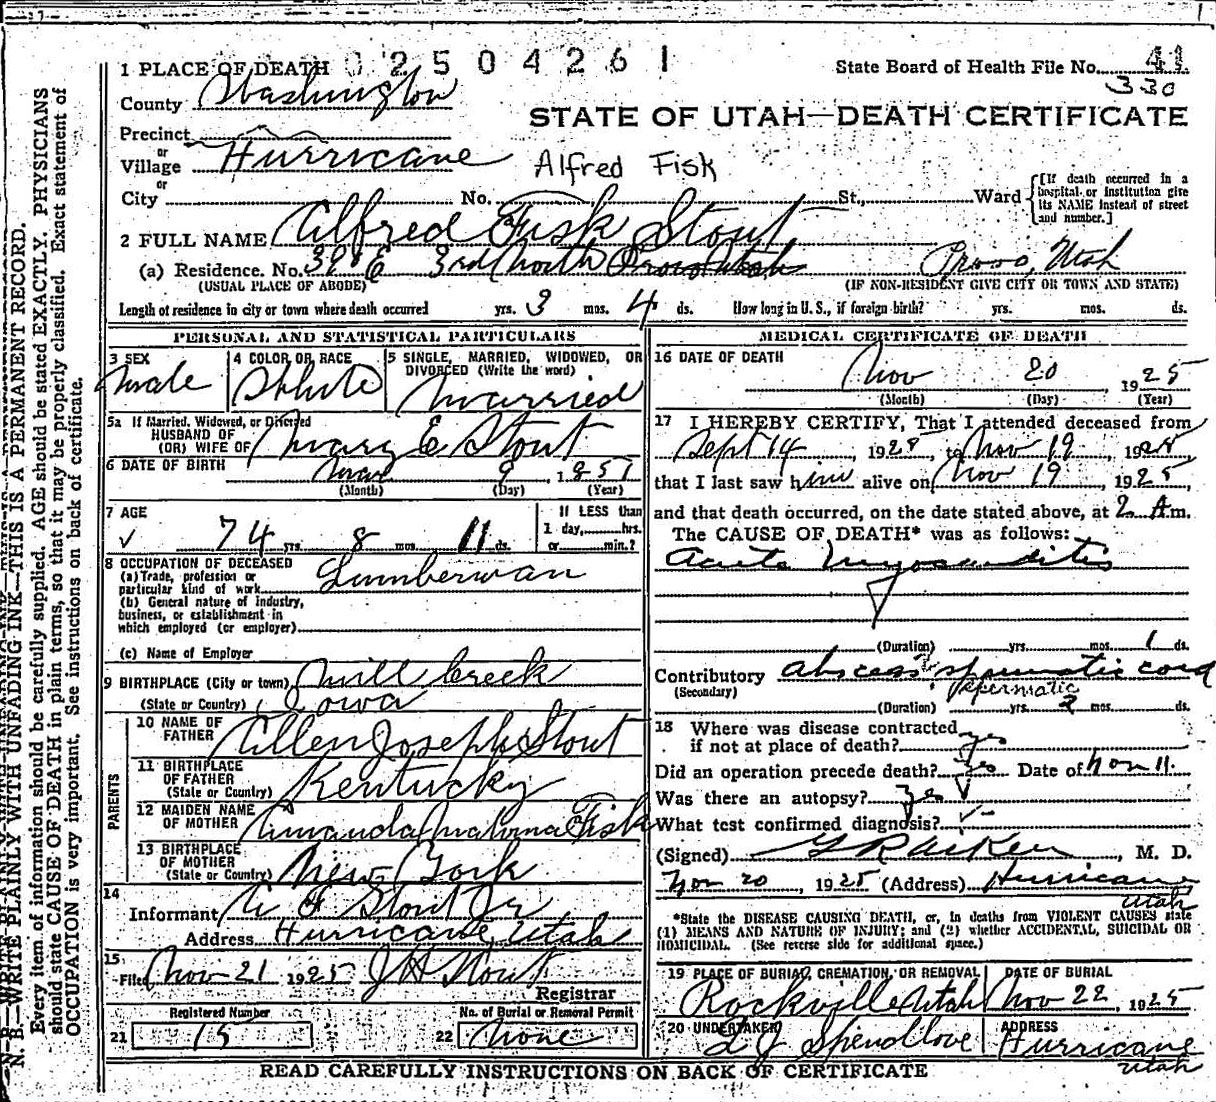 02504261
1 PLACE OF DEATH
State Board of Health File No. 41
330
County Washington
STATE OF UTAH—DEATH CERTIFICATE
Precinct
or
Village Hurricane
Alfred Fisk
or
City No. St., Ward
[If death occurred in a hospital or institution give its NAME instead of street and number.]
2 FULL NAME Alfred Fisk Stout
(a) Residence. No. 398 E 3rd North Provo Utah Provo, Utah
(USUAL PLACE OF ABODE) (IF NON-RESIDENT GIVE CITY OR TOWN AND STATE)
Length of residence in city or town where death occurred yrs. 3 mos. 4 ds. How long in U. S., if foreign birth? yrs. mos. ds.
PERSONAL AND STATISTICAL PARTICULARS
3 SEX
Male
4 COLOR OR RACE
White
5 SINGLE, MARRIED, WIDOWED, OR DIVORCED (Write the word)
Married
5a If Married, Widowed, or Divorced
HUSBAND OF
(OR) WIFE OF Mary E Stout
6 DATE OF BIRTH Mar 9, 1851
(Month) (Day) (Year)
7 AGE
74 yrs. 8 mos. 11 ds.
If LESS than
1 day, hrs.
or min.?
8 OCCUPATION OF DECEASED
(a) Trade, profession or
particular kind of work Lumberman
(b) General nature of industry,
business, or establishment in
which employed (or employer)
(c) Name of Employer
9 BIRTHPLACE (City or town) Mill Creek
(State or Country) Iowa
PARENTS
10 NAME OF
FATHER Allen Joseph Stout
11 BIRTHPLACE
OF FATHER
(State or Country) Kentucky
12 MAIDEN NAME
OF MOTHER Amanda Malvina Fisk
13 BIRTHPLACE
OF MOTHER
(State or Country) New York
14
Informant A F Stout Jr
Address Hurricane, Utah
15
Filed Nov 21 1925 J H Stout
Registrar
Registered Number
21 15
No. of Burial or Removal Permit
22 None
MEDICAL CERTIFICATE OF DEATH
16 DATE OF DEATH
Nov 20, 1925
(Month) (Day) (Year)
17 I HEREBY CERTIFY, That I attended deceased from
Sept 14, 1925, to Nov 19, 1925
that I last saw him alive on Nov 19, 1925,
and that death occurred, on the date stated above, at 2 A.m.
The CAUSE OF DEATH* was as follows:
Acute Myocarditis
(Duration) yrs. mos. 1 ds.
Contributory abscess spermatic cord
(Secondary) spermatic
(Duration) yrs. 2 mos. ds.
18 Where was disease contracted
if not at place of death? yes
Did an operation precede death? yes Date of Nov 11.
Was there an autopsy? yes
What test confirmed diagnosis?
(Signed) , M. D.
Nov 20, 1925 (Address) Hurricane
Utah
*State the DISEASE CAUSING DEATH, or, in deaths from VIOLENT CAUSES state
(1) MEANS AND NATURE OF INJURY; and (2) whether ACCIDENTAL, SUICIDAL OR
HOMICIDAL. (See reverse side for additional space.)
19 PLACE OF BURIAL, CREMATION, OR REMOVAL
Rockville Utah
DATE OF BURIAL
Nov 22, 1925
20 UNDERTAKER
Spendlove
ADDRESS
Hurricane
Utah
READ CAREFULLY INSTRUCTIONS ON BACK OF CERTIFICATE
N. B.—WRITE PLAINLY WITH UNFADING INK—THIS IS A PERMANENT RECORD.
Every item of information should be carefully supplied. AGE should be stated EXACTLY. PHYSICIANS
should state CAUSE OF DEATH in plain terms, so that it may be properly classified. Exact statement of
OCCUPATION is very important. See instructions on back of certificate.